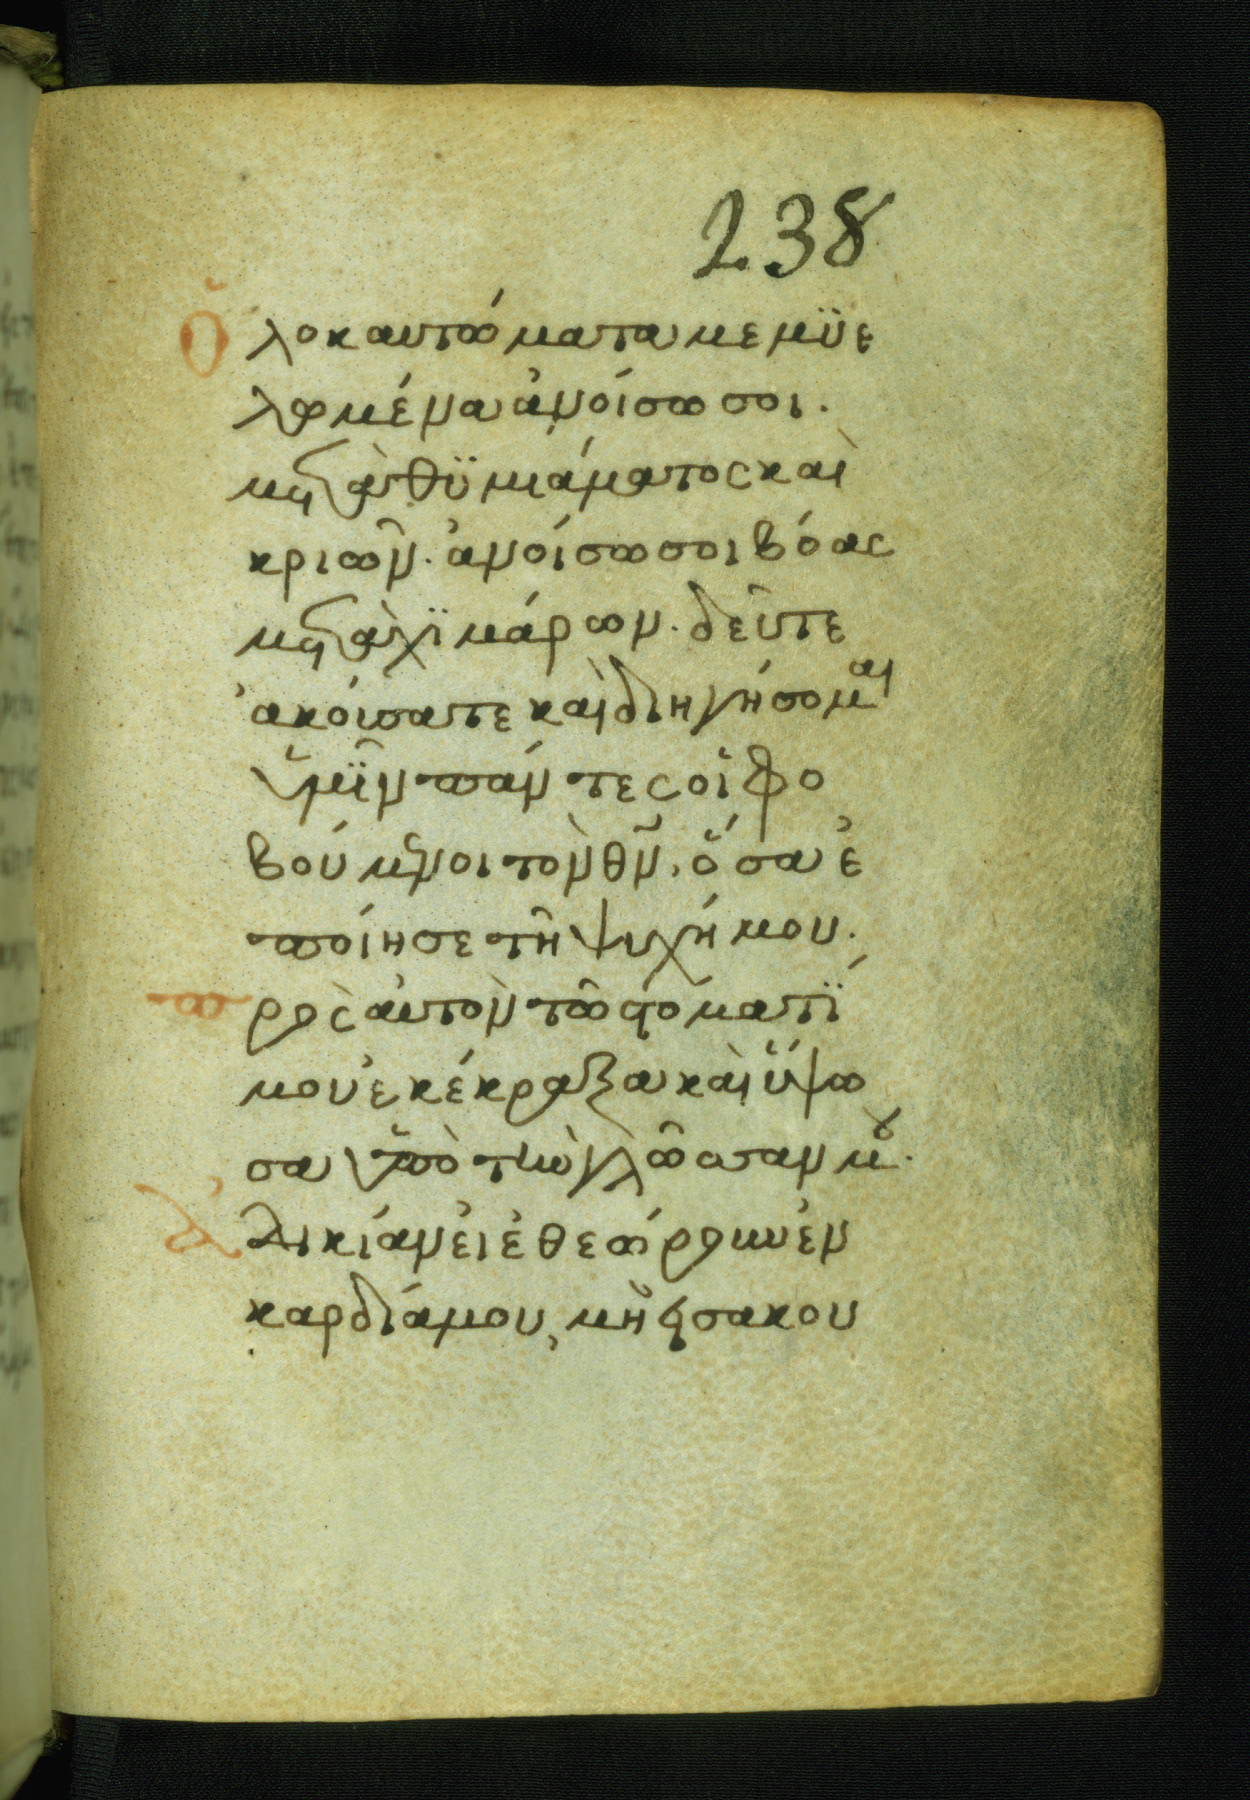 238
Ὁλοκαυτώματα μεμϋε
λωμένα ἀνοίσω σοι.
μετὰ θϋμιάματος καὶ
κριῶν. ἀνοίσω σοι βόας
μετὰ χϊμάρων. δεῦτε
ἀκούσατε καὶ διηγήσομαι
ὑμῖν πάντες οἱ φο
βούμενοι τὸν θν̄, ὅσα ἐ
ποίησε τῆ ψυχῆ μου.
πρὸς αὐτὸν τῶ στόματί
μου ἐκέκραξα καὶ ὕψω
σα ὑπὸ τὴν γλῶσσαν μου.
Ἀδικίαν εἰ ἐθεώρουν ἐν
καρδία μου, μὴ εἰσακου